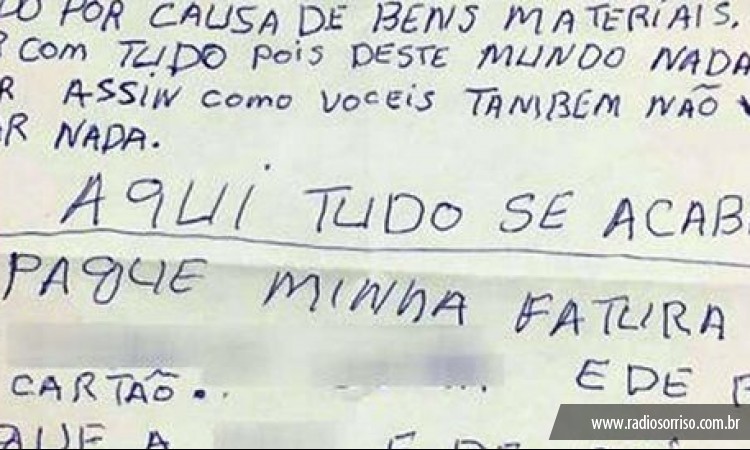 DO POR CAUSA DE BENS MATERIAIS.
COM TUDO POIS DESTE MUNDO NADA
R ASSIN COMO VOCEIS TAMBEM NÃO
AR NADA.
AQUI TUDO SE ACAB
PAGUE MINHA FATURA
CARTÃO.. E DE
QUE A E DE
www.radiosorriso.com.br